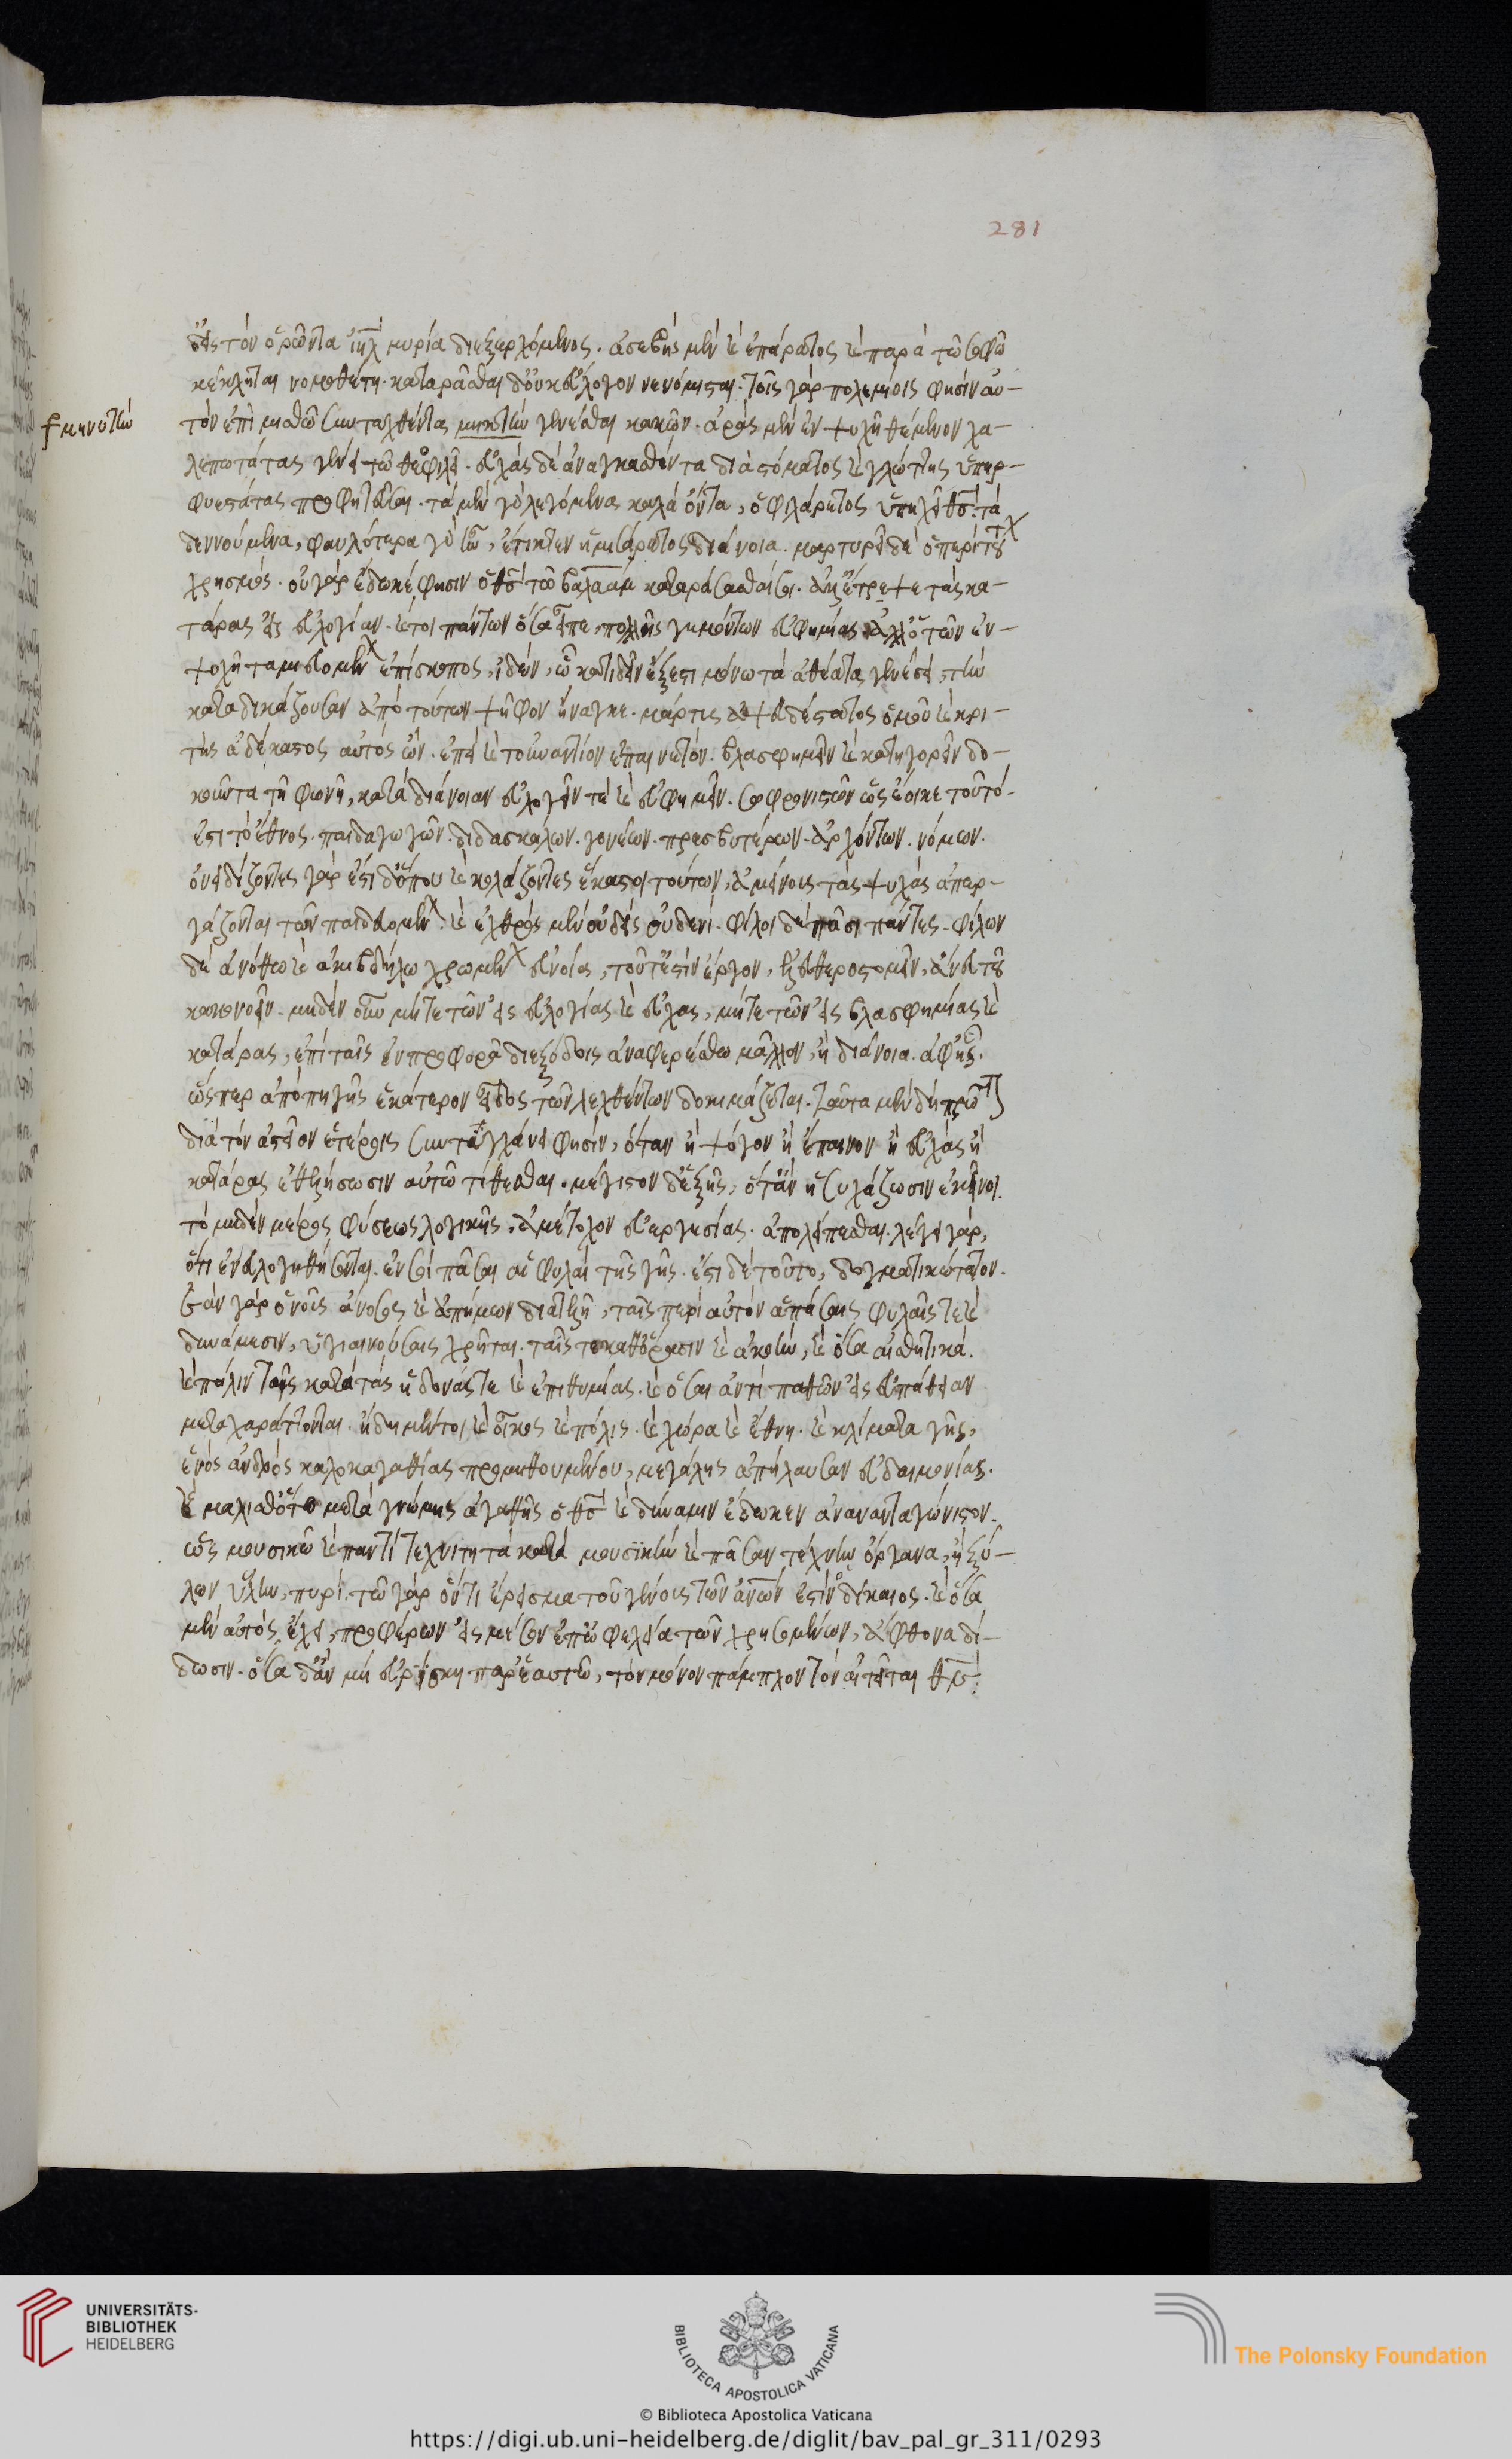 281
δ' εἰς τὸν ὁρῶντα ἰη̅λ μυρία διεξερχόμενος. ἀσεβὴς μὲν καὶ ἐπάρατος καὶ παρὰ τῷ σοφῷ
κέκληται νομοθέτη. καταρᾶσθαι δ' οὐκ εὔλογον νενόμισται. τοῖς γὰρ πολεμίοις φησὶν αὐ-
τὸν ἐπὶ μισθῷ συνταχθέντας μηκετὴν γενέσθαι κακῶν. ἀρὰς μὲν ἐν ψυχῇ θέμενον χα-
f μηνυτὴν
λεπωτάτας γένει τῷ θεοφιλεῖ. εὐχὰς δὲ ἀναγκασθέντα διὰ στόματος καὶ γλώττης ὑπερ-
φυεστάτας προφητεῦσαι. τὰ μὲν γὰρ λεγόμενα καλὰ ὄντα, ὁ φιλάρετος ὑπήχει θ̅ς. τὰ
δ' ἐννοούμενα, φαυλότερα γὰρ ἦν, ἔτικτεν ἡ μισάρετος διάνοια. μαρτυρεῖ δὲ ὁ περὶ τούτου
χρησμός. οὐ γὰρ ἔδωκέ φησιν ὁ θ̅ς τῷ βαλαὰμ καταράσασθαί σοι. ἀλλ' ἔτρεψε τὰς κα-
τάρας εἰς εὐλογίαν. καίτοι πάντων ὅσα εἶπε, πολλῆς γεμόντων εὐφημίας ἀλλ' ὁ τῶν ἐν
ψυχῇ ταμιευομένων ἐπίσκοπος, ἰδὼν, ᾧ κατιδεῖν ἔξεστι μόνω τὰ ἀθέατα γενέσει, τὴν
καταδικάζουσαν ἀπὸ τούτων ψῆφον ἤνεγκε. μάρτυς ἀψευδέστατος ὁμοῦ καὶ κρι-
τὴς ἀδέκαστος αὐτὸς ὤν. ἐπεὶ καὶ τοὐναντίον ἐπαινετόν. βλασφημεῖν καὶ κατηγορεῖν δο-
κοῦντα τῇ φωνῇ, κατὰ διάνοιαν εὐλογεῖν τε καὶ εὐφημεῖν. σωφρονιστῶν ὡς ἔοικε τοῦτό
ἐστι τὸ ἔθνος. παιδαγωγῶν. διδασκάλων. γονέων. πρεσβυτέρων. ἀρχόντων. νόμων.
ὀνειδίζοντες γὰρ ἔστι δ' ὅπου καὶ κολάζοντες ἕκαστοι τούτων, ἀμείνους τὰς ψυχὰς ἀπερ-
γάζονται τῶν παιδευομένων. καὶ ἐχθρὸς μὲν οὐδεὶς οὐδενί. φίλοι δὲ πᾶσι πάντες. φίλων
δὲ ἀνόθω καὶ ἀκιβδήλω χρωμένων εὐνοία, τοῦτ' ἔστιν ἔργον, ἐλευθεροστομεῖν, ἄνευ τοῦ
κακονοεῖν. μηδὲν οὖν μήτε τῶν εἰς εὐλογίας καὶ εὐχὰς, μήτε τῶν εἰς βλασφημίας καὶ
κατάρας, ἐπὶ ταῖς ἐν προφορᾷ διεξόδοις ἀναφερέσθω μᾶλλον, ἢ διάνοια. ἀφ' ἧς
ὥσπερ ἀπὸ πηγῆς ἑκάτερον εἶδος τῶν λεχθέντων δοκιμάζεται. ταῦτα μὲν δὴ πρῶτον
διὰ τὸν ἀστεῖον ἑτέροις συντυγχάνει φησὶν, ὅταν ἢ ψόγον ἢ ἔπαινον ἢ εὐχὰς ἢ
κατάρας ἐθελήσωσιν αὐτῷ τίθεσθαι. μέγιστον δ' ἑξῆς, ὅταν ἡσυχάζωσιν ἐκεῖνοι.
τὸ μηδὲν μέρος φύσεως λογικῆς, ἀμέτοχον εὐεργεσίας. ἀπολείπεσθαι. λέγει γὰρ,
ὅτι ἐνευλογηθήσονται ἐν σοὶ πᾶσαι αἱ φυλαὶ τῆς γῆς. ἔστι δὲ τοῦτο, δογματικώτατον.
ἐὰν γὰρ ὁ νοῦς ἄνοσος καὶ ἀπήμων διατελῇ, ταῖς περὶ αὐτὸν ἁπάσαις φυλαῖς τε καὶ
δυνάμεσιν, ὑγιαινούσαις χρῆται. ταῖς τε καθ' ὅρασιν καὶ ἀκοὴν, καὶ ὅσαι αἰσθητικά.
καὶ πάλιν ταῖς κατὰ τὰς ἡδονάς τε καὶ ἐπιθυμίας. καὶ ὅσαι ἀντὶ παθῶν εἰς εὐπάθειαν
μεταχαράττονται. ἤδη μέντοι καὶ οἶκος καὶ πόλις. καὶ χώρα καὶ ἔθνη. καὶ κλίματα γῆς,
ἑνὸς ἀνδρὸς καλοκαγαθίας προμηθουμένου, μεγάλης ἀπήλαυσαν εὐδαιμονίας.
καὶ μάλισθ' ὅτω μετὰ γνώμης ἀγαθῆς ὁ θ̅ς καὶ δύναμιν ἔδωκεν ἀνανανταγώνιστον.
ὡς μουσικῷ καὶ παντὶ τεχνίτη τὰ κατὰ μουσικὴν καὶ πᾶσαν τέχνην ὄργανα, ἢ ξύ-
λων ὕλην, πυρί. τῷ γὰρ ὄντι ἔρεισμα τοῦ γένους τῶν ἀν̅ων ἐστὶν ὁ δίκαιος. καὶ ὅσα
μὲν αὐτὸς ἔχει, προφέρων εἰς μέσον ἐπ' ὠφελεία τῶν χρησομένων, ἄφθονα δί-
δωσιν. ὅσα δ' ἂν μὴ εὑρίσκη παρ' ἑαυτῷ, τὸν μόνον πάμπλουτον αἰτεῖται θ̅ν.
UNIVERSITÄTS-
BIBLIOTHEK
HEIDELBERG
BIBLIOTECA APOSTOLICA VATICANA
The Polonsky Foundation
© Biblioteca Apostolica Vaticana
https://digi.ub.uni-heidelberg.de/diglit/bav_pal_gr_311/0293